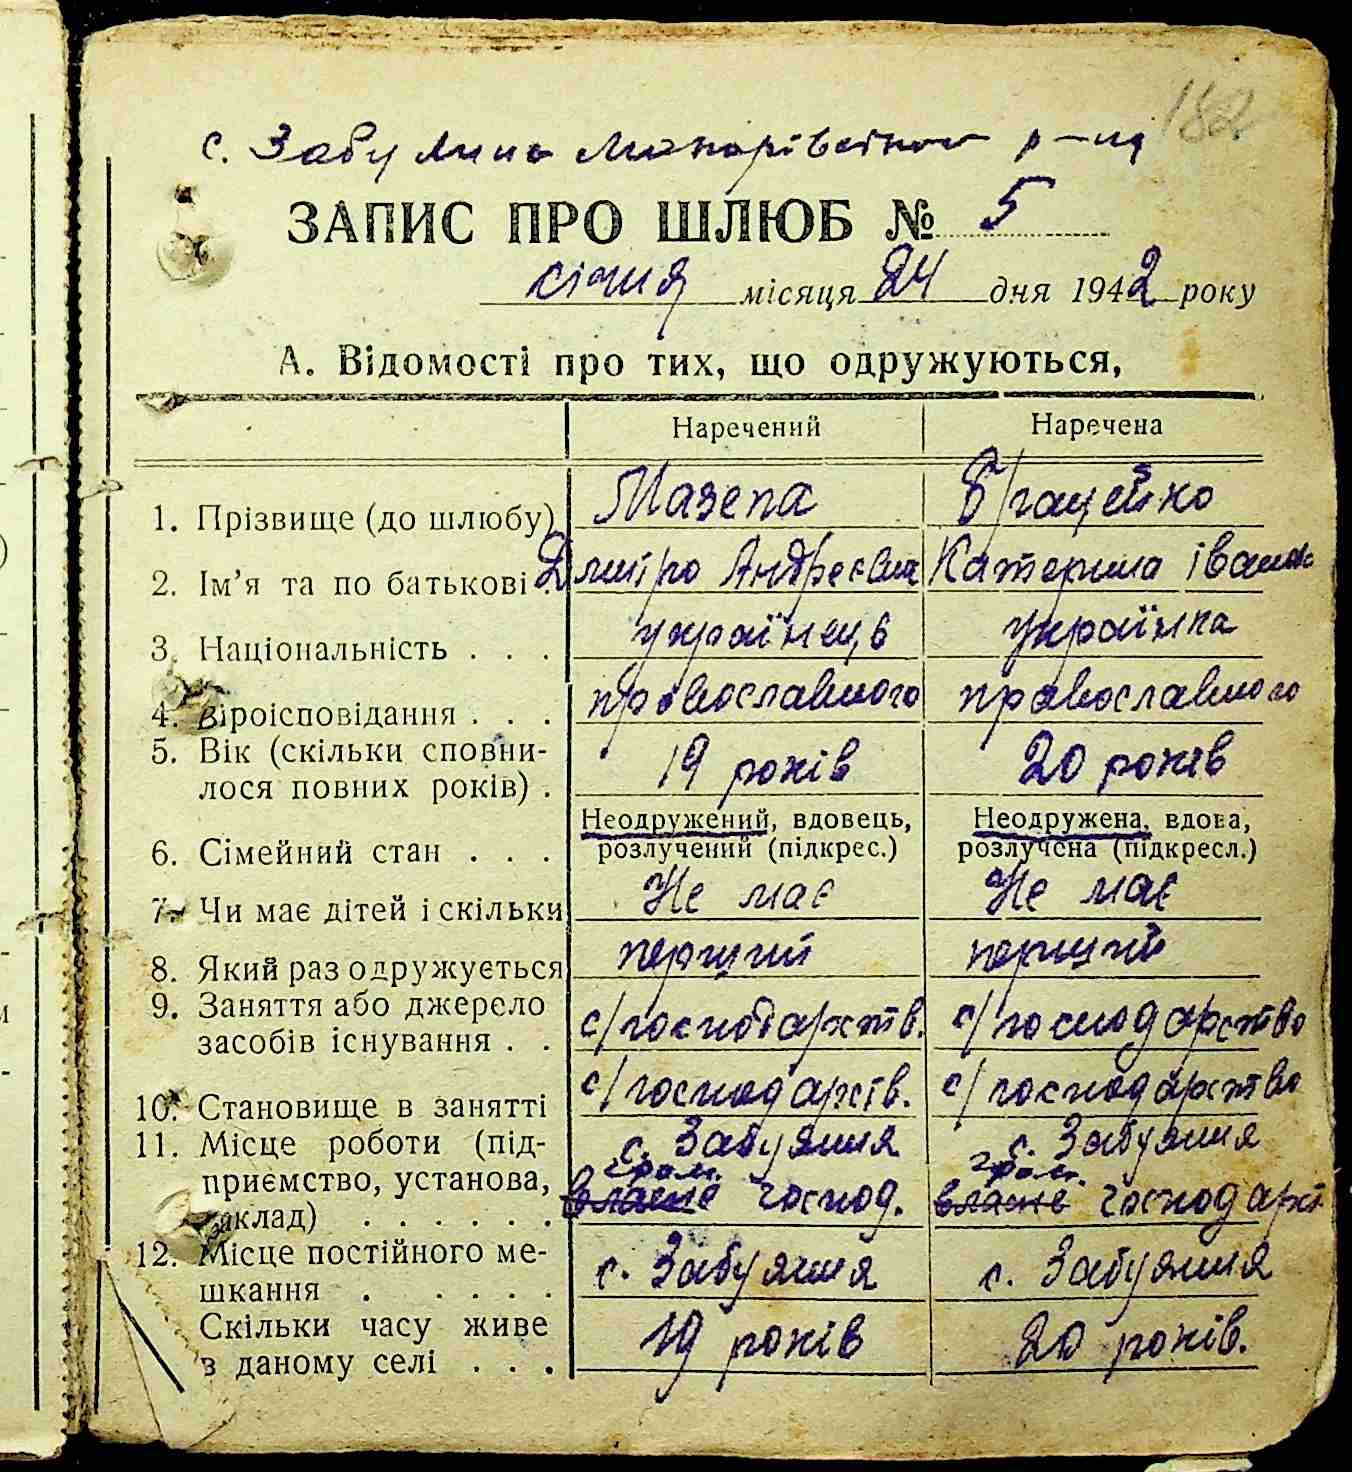 182
с. Забуяння Макарівського р-на
ЗАПИС ПРО ШЛЮБ № 5
січня місяця 24 дня 1942 року
А. Відомості про тих, що одружуються,
Наречений Наречена
1. Прізвище (до шлюбу) Мазепа
2. Ім'я та по батькові . Дмитро Андреєвич Катерина Іванів
3. Національність . . . українець українка
4. Віроісповідання . . . православного православного
5. Вік (скільки сповни-
лося повних років) . 19 років 20 років
Неодружений, вдовець, Неодружена, вдова,
6. Сімейний стан . . . розлучений (підкрес.) розлучена (підкресл.)
7. Чи має дітей і скільки Не має Не має
8. Який раз одружується перший перший
9. Заняття або джерело
засобів існування . . с/господарств. с/господарство
10. Становище в занятті с/господарств. с/господарство
11. Місце роботи (під- с. Забуяння с. Забуяння
гром. гром.
приємство, установа, власне господ. власне господарст
заклад) . . . . . .
12. Місце постійного ме-
шкання . . . . . с. Забуяння с. Забуяння
Скільки часу живе
в даному селі . . . 19 років 20 років.